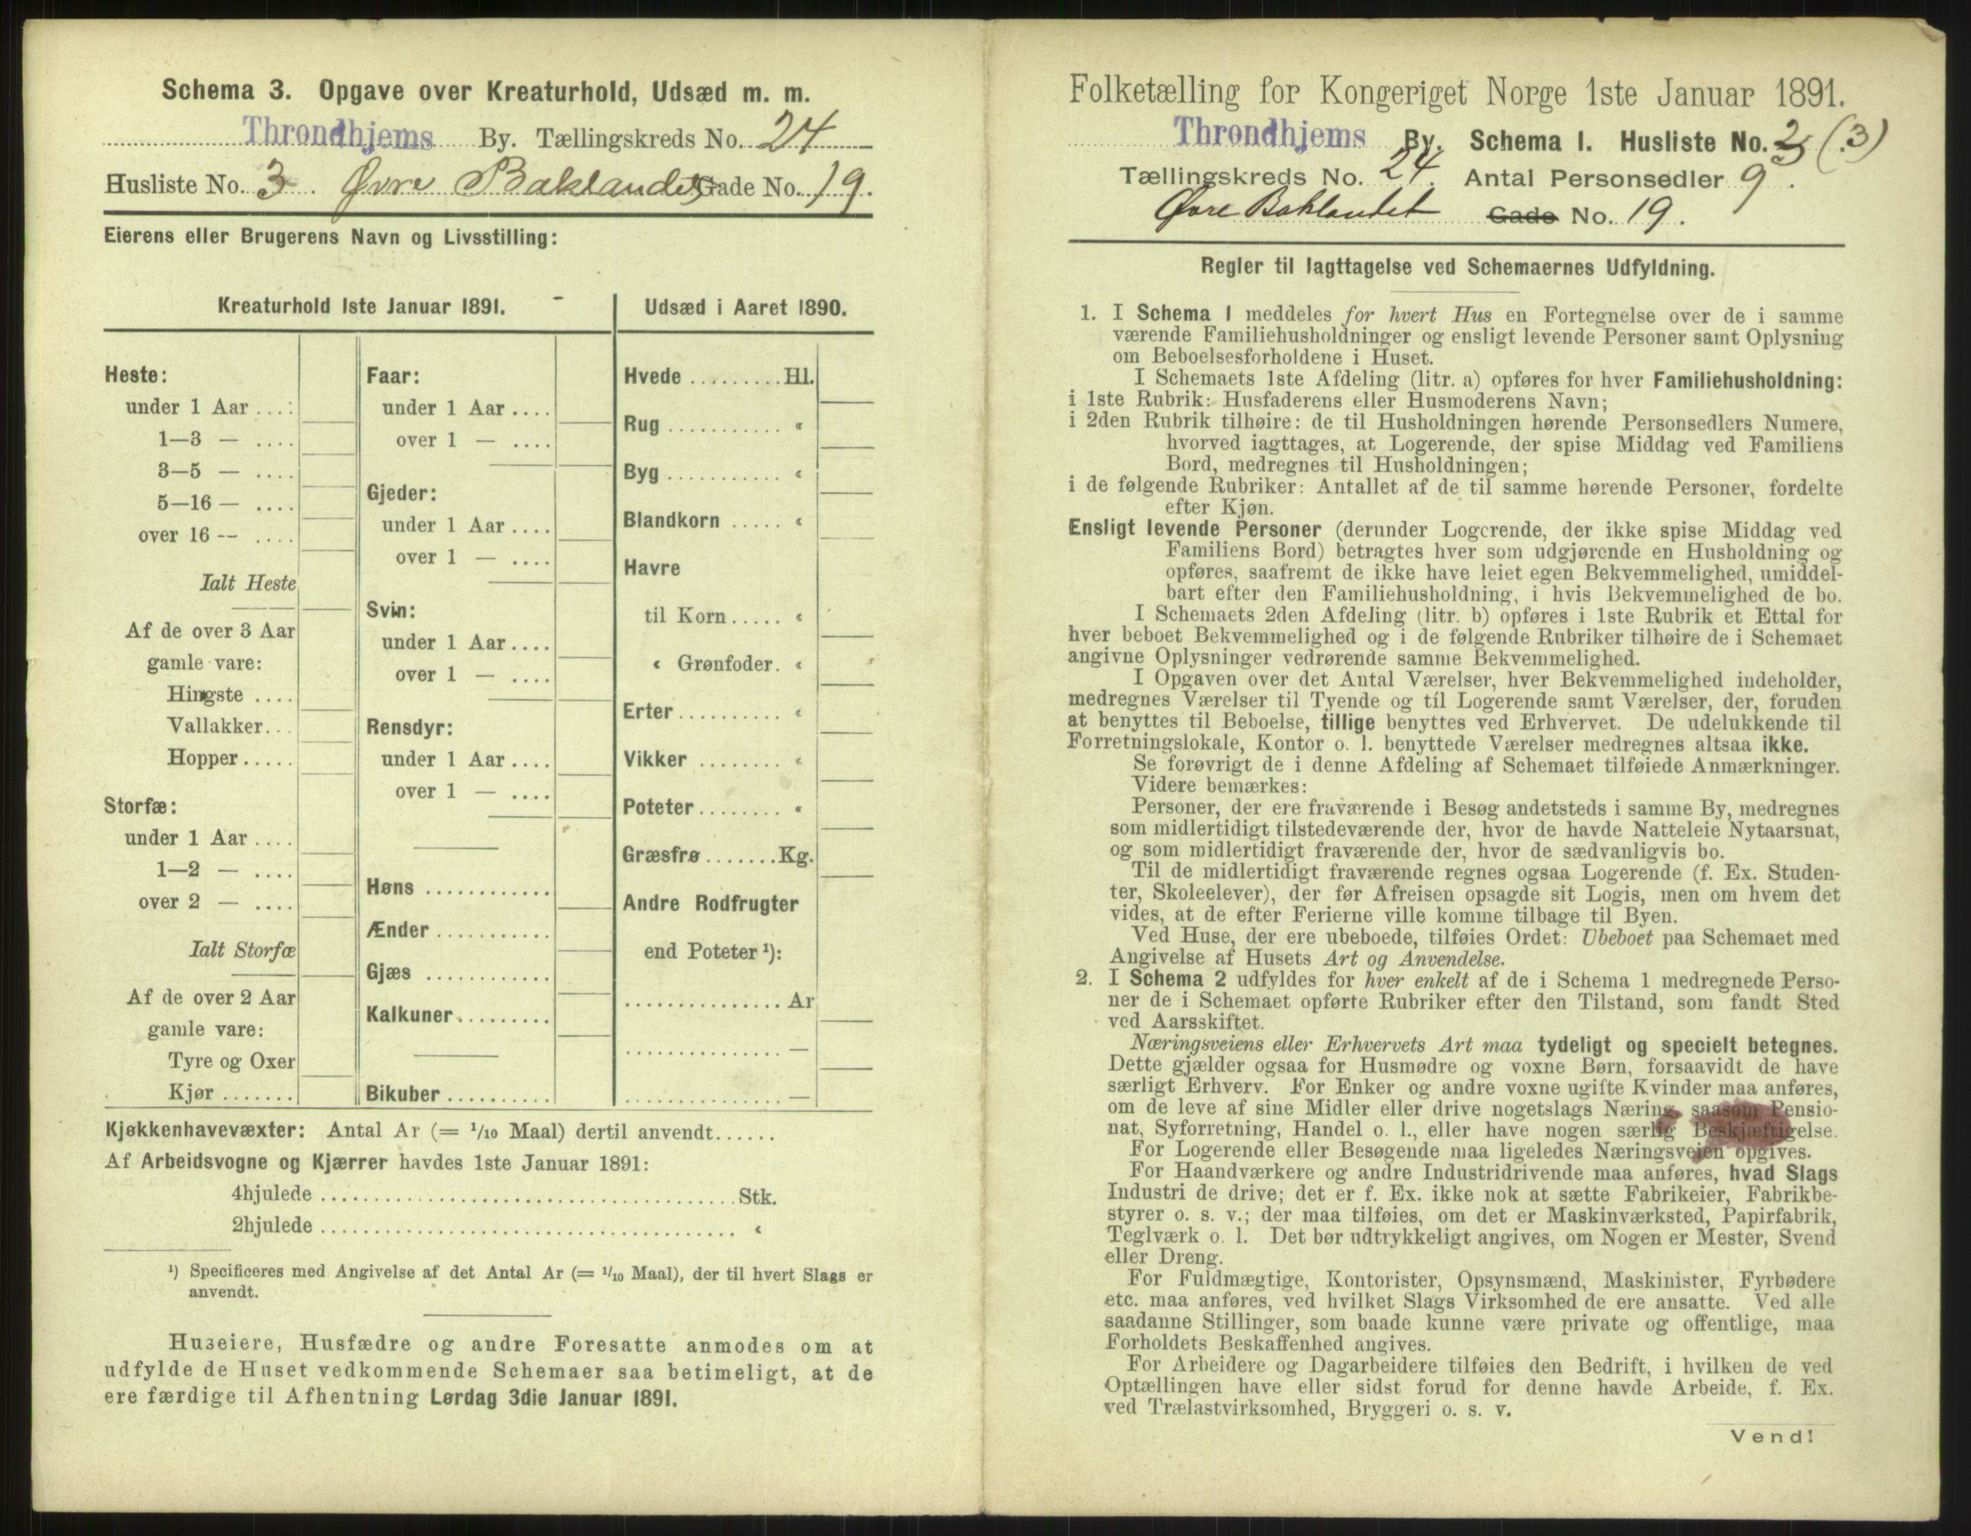 Schema 3. Opgave over Kreaturhold, Udsæd m. m.
Throndhjems By. Tællingskreds No. 24
Husliste No. 3. Øvre Baklandet Gade No. 19.
Eierens eller Brugerens Navn og Livsstilling:
Kreaturhold 1ste Januar 1891.
Heste:
under 1 Aar ....
1—3 — ....
3—5 — ....
5—16 — ....
over 16 — ....
Ialt Heste
Af de over 3 Aar
gamle vare:
Hingste ....
Vallakker...
Hopper.....
Storfæ:
under 1 Aar ....
1—2 — ....
over 2 — ....
Ialt Storfæ
Af de over 2 Aar
gamle vare:
Tyre og Oxer
Kjør .......
Faar:
under 1 Aar ....
over 1 — ....
Gjeder:
under 1 Aar ....
over 1 — ....
Svin:
under 1 Aar ....
over 1 — ....
Rensdyr:
under 1 Aar ....
over 1 — ....
Høns ............
Ænder ...........
Gjæs ............
Kalkuner.........
Bikuber ..........
Udsæd i Aaret 1890.
Hvede .........Hl.
Rug ........... «
Byg ........... «
Blandkorn ..... «
Havre
til Korn..... «
« Grønfoder. «
Erter.......... «
Vikker ........ «
Poteter........ «
Græsfrø.......Kg.
Andre Rodfrugter
end Poteter ¹):
...............Ar
...............—
...............—
Kjøkkenhavevæxter: Antal Ar (= 1/10 Maal) dertil anvendt......
Af Arbeidsvogne og Kjærrer havdes 1ste Januar 1891:
4hjulede ...................................Stk.
2hjulede ................................... «
¹) Specificeres med Angivelse af det Antal Ar (= 1/10 Maal), der til hvert Slags er
anvendt.
Huseiere, Husfædre og andre Foresatte anmodes om at
udfylde de Huset vedkommende Schemaer saa betimeligt, at de
ere færdige til Afhentning Lørdag 3die Januar 1891.
Folketælling for Kongeriget Norge 1ste Januar 1891.
Throndhjems By. Schema I. Husliste No. (3)
Tællingskreds No. 24. Antal Personsedler 9.
Øvre Baklandet Gade No. 19.
Regler til Iagttagelse ved Schemaernes Udfyldning.
1. I Schema I meddeles for hvert Hus en Fortegnelse over de i samme
værende Familiehusholdninger og ensligt levende Personer samt Oplysning
om Beboelsesforholdene i Huset.
I Schemaets 1ste Afdeling (litr. a) opføres for hver Familiehusholdning:
i 1ste Rubrik: Husfaderens eller Husmoderens Navn;
i 2den Rubrik tilhøire: de til Husholdningen hørende Personsedlers Numere,
hvorved iagttages, at Logerende, der spise Middag ved Familiens
Bord, medregnes til Husholdningen;
i de følgende Rubriker: Antallet af de til samme hørende Personer, fordelte
efter Kjøn.
Ensligt levende Personer (derunder Logerende, der ikke spise Middag ved
Familiens Bord) betragtes hver som udgjørende en Husholdning og
opføres, saafremt de ikke have leiet egen Bekvemmelighed, umiddel-
bart efter den Familiehusholdning, i hvis Bekvemmelighed de bo.
I Schemaets 2den Afdeling (litr. b) opføres i 1ste Rubrik et Ettal for
hver beboet Bekvemmelighed og i de følgende Rubriker tilhøire de i Schemaet
angivne Oplysninger vedrørende samme Bekvemmelighed.
I Opgaven over det Antal Værelser, hver Bekvemmelighed indeholder,
medregnes Værelser til Tyende og til Logerende samt Værelser, der, foruden
at benyttes til Beboelse, tillige benyttes ved Erhvervet. De udelukkende til
Forretningslokale, Kontor o. l. benyttede Værelser medregnes altsaa ikke.
Se forøvrigt de i denne Afdeling af Schemaet tilføiede Anmærkninger.
Videre bemærkes:
Personer, der ere fraværende i Besøg andetsteds i samme By, medregnes
som midlertidigt tilstedeværende der, hvor de havde Natteleie Nytaarsnat,
og som midlertidigt fraværende der, hvor de sædvanligvis bo.
Til de midlertidigt fraværende regnes ogsaa Logerende (f. Ex. Studen-
ter, Skoleelever), der før Afreisen opsagde sit Logis, men om hvem det
vides, at de efter Ferierne ville komme tilbage til Byen.
Ved Huse, der ere ubeboede, tilføies Ordet: Ubeboet paa Schemaet med
Angivelse af Husets Art og Anvendelse.
2. I Schema 2 udfyldes for hver enkelt af de i Schema 1 medregnede Perso-
ner de i Schemaet opførte Rubriker efter den Tilstand, som fandt Sted
ved Aarsskiftet.
Næringsveiens eller Erhvervets Art maa tydeligt og specielt betegnes.
Dette gjælder ogsaa for Husmødre og voxne Børn, forsaavidt de have
særligt Erhverv. For Enker og andre voxne ugifte Kvinder maa anføres,
om de leve af sine Midler eller drive nogetslags Næring, saasom Pensio-
nat, Syforretning, Handel o. l., eller have nogen særlig Beskjæftigelse.
For Logerende eller Besøgende maa ligeledes Næringsveien opgives.
For Haandværkere og andre Industridrivende maa anføres, hvad Slags
Industri de drive; det er f. Ex. ikke nok at sætte Fabrikeier, Fabrikbe-
styrer o. s. v.; der maa tilføies, om det er Maskinværksted, Papirfabrik,
Teglværk o. l. Det bør udtrykkeligt angives, om Nogen er Mester, Svend
eller Dreng.
For Fuldmægtige, Kontorister, Opsynsmænd, Maskinister, Fyrbødere
etc. maa anføres, ved hvilket Slags Virksomhed de ere ansatte. Ved alle
saadanne Stillinger, som baade kunne være private og offentlige, maa
Forholdets Beskaffenhed angives.
For Arbeidere og Dagarbeidere tilføies den Bedrift, i hvilken de ved
Optællingen have eller sidst forud for denne havde Arbeide, f. Ex.
ved Trælastvirksomhed, Bryggeri o. s. v.
Vend!